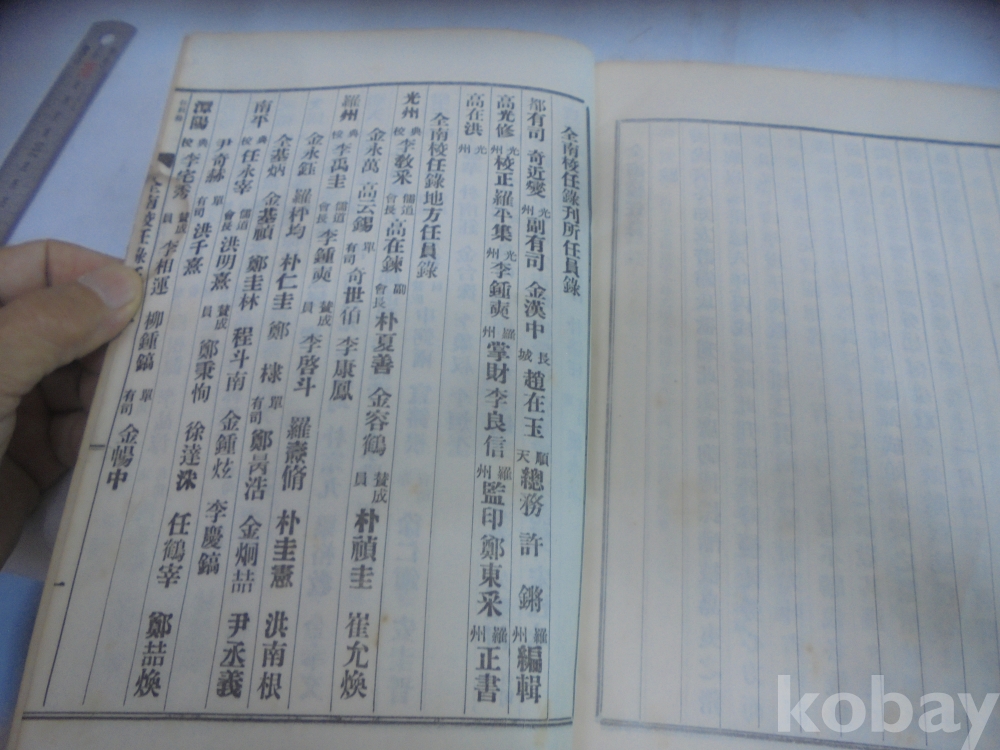 全南校任錄刊所任員錄
都有司 奇近燮 光州 副有司 金漢中 長城 趙在玉 順天 總務 許 鏘 羅州 編輯
高光修 光州 校正 羅平集 光州 李鍾奭 羅州 掌財 李良信 羅州 監印 鄭東采 羅州 正書
高在洪 光州
全南校任錄地方任員錄
光州 典校 李敎采 儒道會長 高在鍊 副會長 朴夏善 金容鶴 贊成員 朴禎圭 崔允煥
金永萬 高云錫 單有司 奇世伯 李康鳳
羅州 典校 李禹圭 儒道會長 李鍾奭 贊成員 李啓斗 羅燾脩 朴圭憲 洪南根
金永鈺 羅秤均 朴仁圭 鄭 棣 單有司 鄭昺浩 金炯喆 尹丞義
南平 典校 任永宰 儒道會長 洪明熹 贊成員 鄭秉恂 徐達洙 任鶴宰 鄭喆煥
全基炳 金基禎 鄭圭林 程斗南 金鍾炫 李慶鎬
尹奇赫 單有司 洪千熹
潭陽 典校 李宅秀 贊成員 李相運 柳鍾鎬 單有司 金暢中
全南校任錄
一
kobay